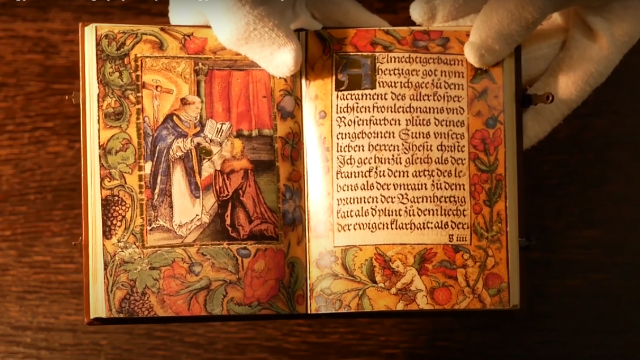 Almechtiger barm
hertziger got nym
war ich gee zů dem
sacrament des aller kosper
lichsten fronleichnams vnd
Rosenfarben plůts deines
eingebornen Suns vnsers
lieben herren Jhesu christe
Ich gee hinzů gleich als der
kranck zů dem artzt des le
bens als der vnrain zů dem
prunnen der Barmhertzig
kait als d plint zů dem liecht
der ewigen klarhait: als der
g iiii